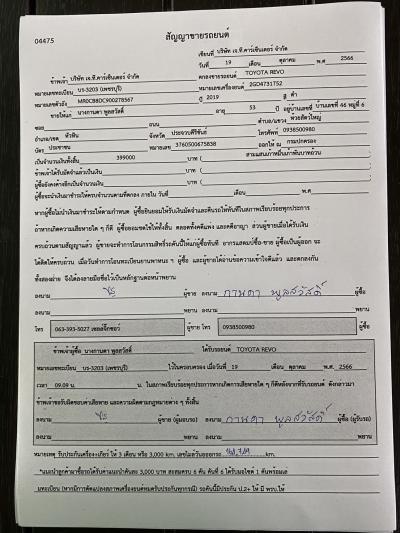 04475
สัญญาขายรถยนต์
เขียนที่ บริษัท เจ.ที.คาร์เซ็นเตอร์ จำกัด
วันที่ 19 เดือน ตุลาคม พ.ศ. 2566
ข้าพเจ้า บริษัท เจ.ที.คาร์เซ็นเตอร์ จำกัด ตกลงขายรถยนต์ TOYOTA REVO
หมายเลขทะเบียน บร-3203 (เพชรบุรี) หมายเลขเครื่องยนต์ 2GD4731752
หมายเลขตัวถัง MR0CB8DC900278567 ปี 2019 สี ดำ
ขายให้แก่ นางกานดา พูลสวัสดิ์ อายุ 53 ปี อยู่บ้านเลขที่ บ้านเลขที่ 46 หมู่ที่ 6
ซอย ถนน ตำบล/แขวง ห้วยสัตว์ใหญ่
อำเภอ/เขต หัวหิน จังหวัด ประจวบคีรีขันธ์ โทรศัพท์ 0938500980
บัตร ประชาชน หมายเลข 3760500675838 ออกให้ ณ กรมปกครอง
เป็นจำนวนเงินทั้งสิ้น 399000 บาท ( สามแสนเก้าหมื่นเก้าพันบาทถ้วน
ข้าพเจ้าได้รับมัดจำแล้วเป็นเงิน บาท (
ผู้ซื้อยังคงค้างอีกเป็นจำนวนเงิน บาท (
ผู้ซื้อจะนำเงินมาชำระให้ครบจำนวนตามที่ตกลง ภายใน วันที่ เดือน พ.ศ.
หากผู้ซื้อไม่นำเงินมาชำระตามกำหนด ผู้ซื้อยินยอมให้ริบเงินมัดจำและคืนรถให้ทันทีในสภาพเรียบร้อยทุกประการ
ถ้าหากเกิดความเสียหายใด ๆ ก็ดี ผู้ซื้อยอมชดใช้ให้ทั้งสิ้น ตลอดทั้งคดีแพ่ง และคดีอาญา ส่วนผู้ขายเมื่อได้รับเงิน
ครบถ้วนตามสัญญาแล้ว ผู้ขายจะทำการโอนกรรมสิทธิ์รถคันนี้ให้แก่ผู้ซื้อทันที
ได้คิดให้ครบถ้วน เมื่อวันทำการโอนทะเบียนยานพาหนะ ฯ ผู้ซื้อ และผู้ขายได้อ่านข้อความเข้าใจดีแล้ว และตกลงกัน
ทั้งสองฝ่าย จึงได้ลงลายมือชื่อไว้เป็นหลักฐานต่อหน้าพยาน
ลงนาม ผู้ขาย ลงนาม กานดา พูลสวัสดิ์ ผู้ซื้อ
ลงนาม พยาน ลงนาม พยาน
โทร 063-393-5027 เซลล์จี๊กซอว์ ผู้ขาย โทร 0938500980 ผู้ซื้อ
ข้าพเจ้าผู้ซื้อ นางกานดา พูลสวัสดิ์ ได้รับรถยนต์ TOYOTA REVO
หมายเลขทะเบียน บร-3203 (เพชรบุรี) ไว้ในครอบครอง เมื่อวันที่ 19 เดือน ตุลาคม พ.ศ. 2566
เวลา 09.09 น. น. ในสภาพเรียบร้อยทุกประการหากเกิดการเสียหายใด ๆ ก็ดีหลังจากที่รับรถยนต์ ดังกล่าวมา
ข้าพเจ้าขอรับผิดชอบค่าเสียหาย และความผิดตามกฎหมายต่าง ๆ ทั้งสิ้น
ลงนาม ผู้ขาย (ผู้มอบรถ) ลงนาม กานดา พูลสวัสดิ์ ผู้ซื้อ (ผู้รับรถ)
ลงนาม พยาน ลงนาม พยาน
หมายเหตุ รับประกันเครื่อง+เกียร์ ให้ 3 เดือน หรือ 3,000 km. เลขไมล์วันออกรถ km.
*แนะนำลูกค้ามาซื้อรถได้รับค่าแนะนำคันละ 3,000 บาท สะสมครบ 6 คัน คันที่ 6 ได้รับมอไซค์ 1 คันพร้อมเล่
มทะเบียน (หากมีการดัดแปลงสภาพเครื่องยนต์หมดรับประกันทุกกรณี) รถคันนี้มีประกัน ป.2+ ให้ มี พรบ.ให้